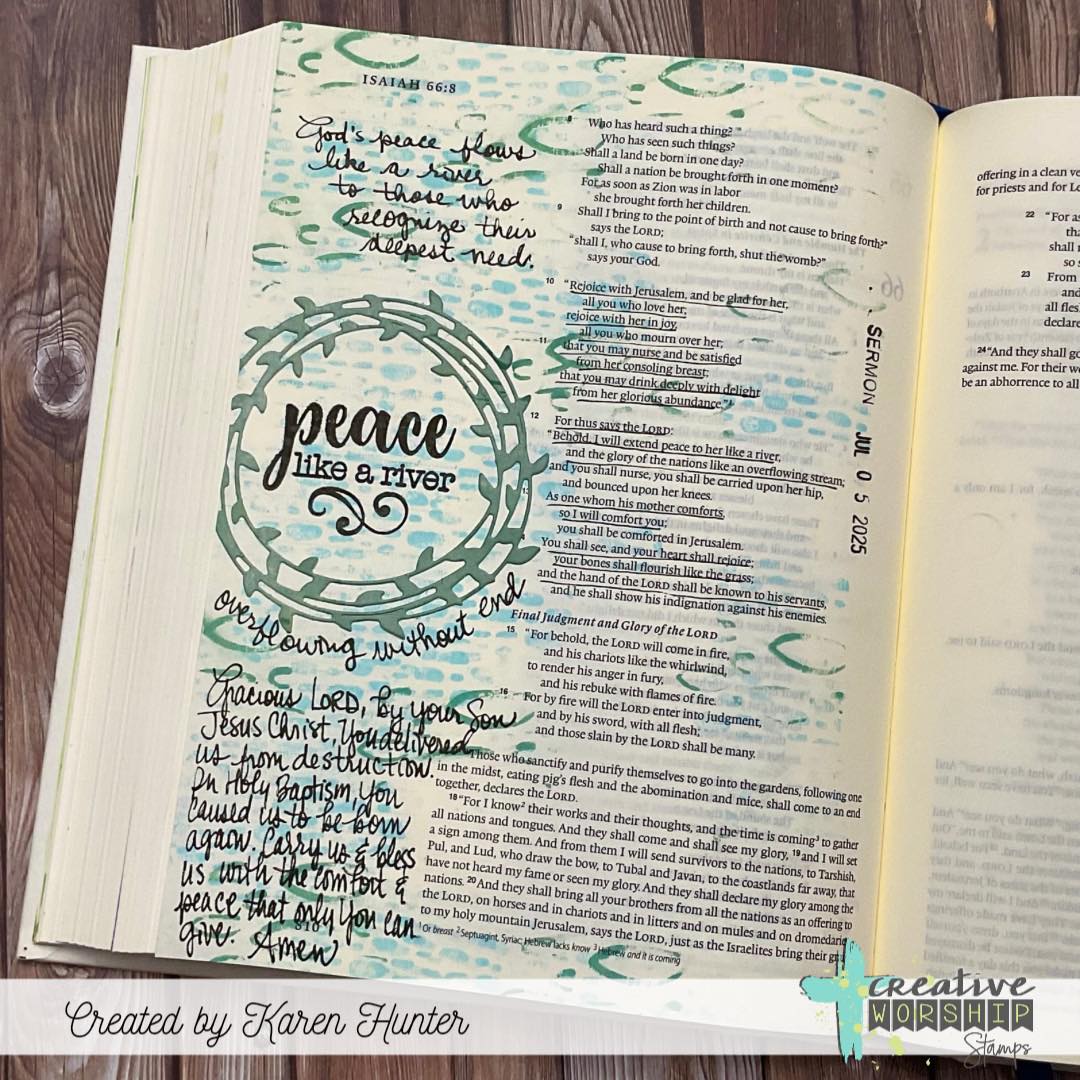 ISAIAH 66:8
God's peace flows
like a river
to those who
recognize their
deepest need.
peace
like a river
overflowing without end
Gracious LORD, by your Son
Jesus Christ, You delivered
us from destruction.
In Holy Baptism, You
caused us to be born
again. Carry us & bless
us with the comfort &
peace that only You can
give. Amen
8 Who has heard such a thing?
Who has seen such things?
Shall a land be born in one day?
Shall a nation be brought forth in one moment?
For as soon as Zion was in labor
she brought forth her children.
9 Shall I bring to the point of birth and not cause to bring forth?"
says the LORD;
"shall I, who cause to bring forth, shut the womb?"
says your God.
10 "Rejoice with Jerusalem, and be glad for her,
all you who love her;
rejoice with her in joy,
all you who mourn over her;
11 that you may nurse and be satisfied
from her consoling breast;
that you may drink deeply with delight
from her glorious abundance."1
12 For thus says the LORD:
"Behold, I will extend peace to her like a river,
and the glory of the nations like an overflowing stream;
and you shall nurse, you shall be carried upon her hip,
and bounced upon her knees.
13 As one whom his mother comforts,
so I will comfort you;
you shall be comforted in Jerusalem.
You shall see, and your heart shall rejoice;
your bones shall flourish like the grass;
and the hand of the LORD shall be known to his servants,
and he shall show his indignation against his enemies.
Final Judgment and Glory of the LORD
15 "For behold, the LORD will come in fire,
and his chariots like the whirlwind,
to render his anger in fury,
and his rebuke with flames of fire.
16 For by fire will the LORD enter into judgment,
and by his sword, with all flesh;
and those slain by the LORD shall be many.
Those who sanctify and purify themselves to go into the gardens, following one
in the midst, eating pig's flesh and the abomination and mice, shall come to an end
together, declares the LORD.
18 "For I know2 their works and their thoughts, and the time is coming3 to gather
all nations and tongues. And they shall come and shall see my glory, 19 and I will set
a sign among them. And from them I will send survivors to the nations, to Tarshish,
Pul, and Lud, who draw the bow, to Tubal and Javan, to the coastlands far away, that
have not heard my fame or seen my glory. And they shall declare my glory among the
nations. 20 And they shall bring all your brothers from all the nations as an offering to
the LORD, on horses and in chariots and in litters and on mules and on dromedaries
to my holy mountain Jerusalem, says the LORD, just as the Israelites bring their
1 Or breast 2 Septuagint, Syriac; Hebrew lacks know 3 Hebrew and it is coming
SERMON JUL 05 2025
offering in a clean
for priests and for
22 "For
shall
so
23 From
and
all
declare
24 "And they shall go
against me. For their
be an abhorrence to all
Created by Karen Hunter
creative
WORSHIP
Stamps